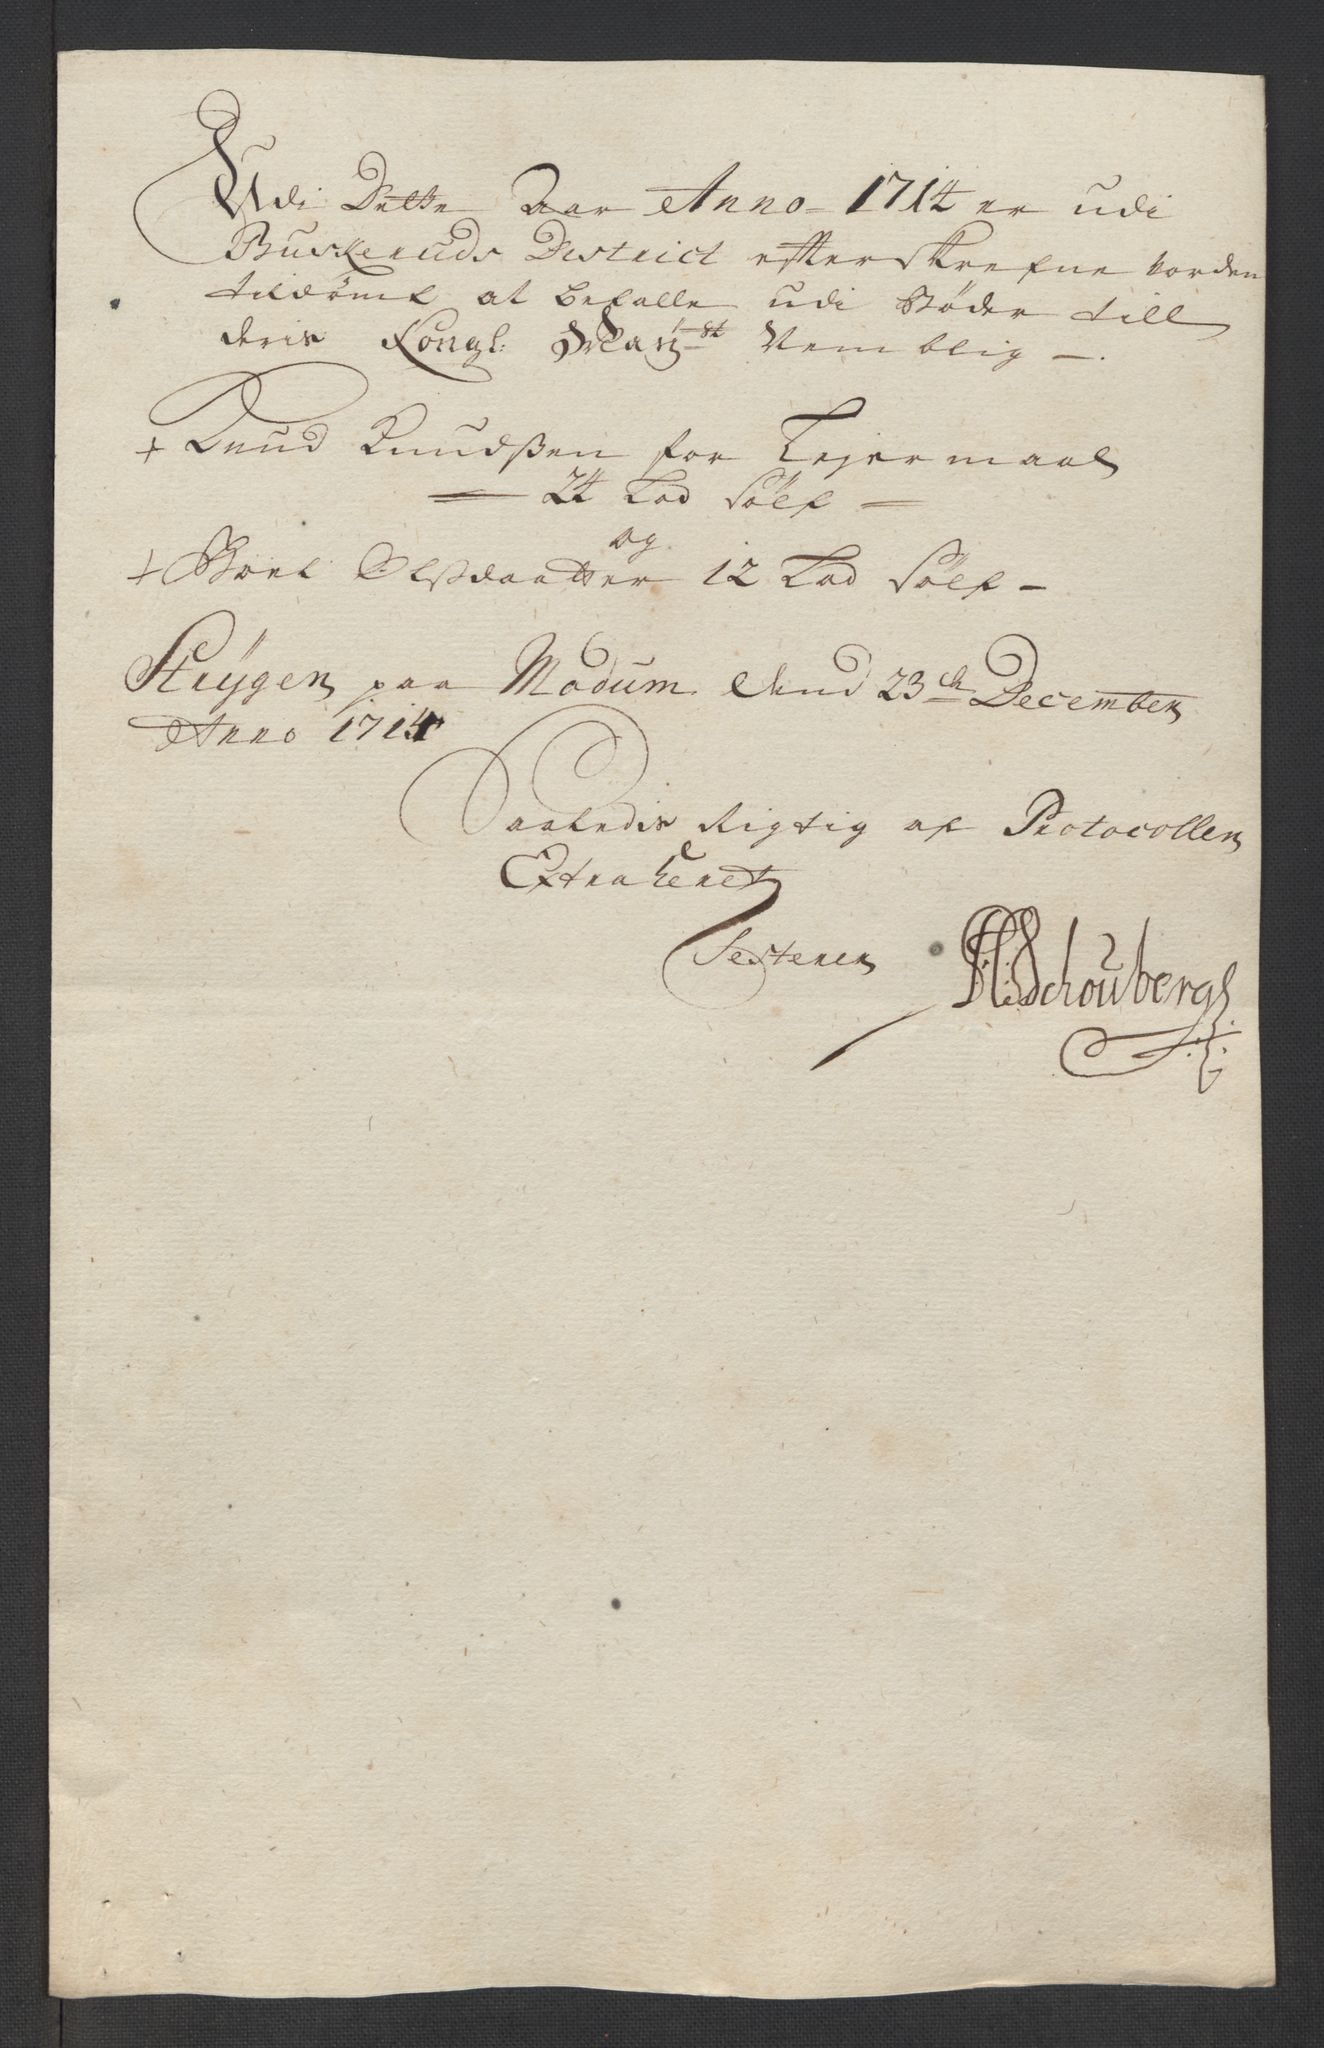 Udi Dette Aar Anno 1714 er udi
Buskeruds District effterskrefne vorden
tildømt at befalle udi Bøder till
deris Kongl: May.st
+ Knud Knudßen for Leyermaal
24 Lod Sølf
og
+ Boel Olßdaatter 12 Lod Sølf
Strÿgen paa Modum dend 23de December
Anno 1714
Saaledis Rigtig af Protocollen
Extraheret
Testerer H Schoüberg